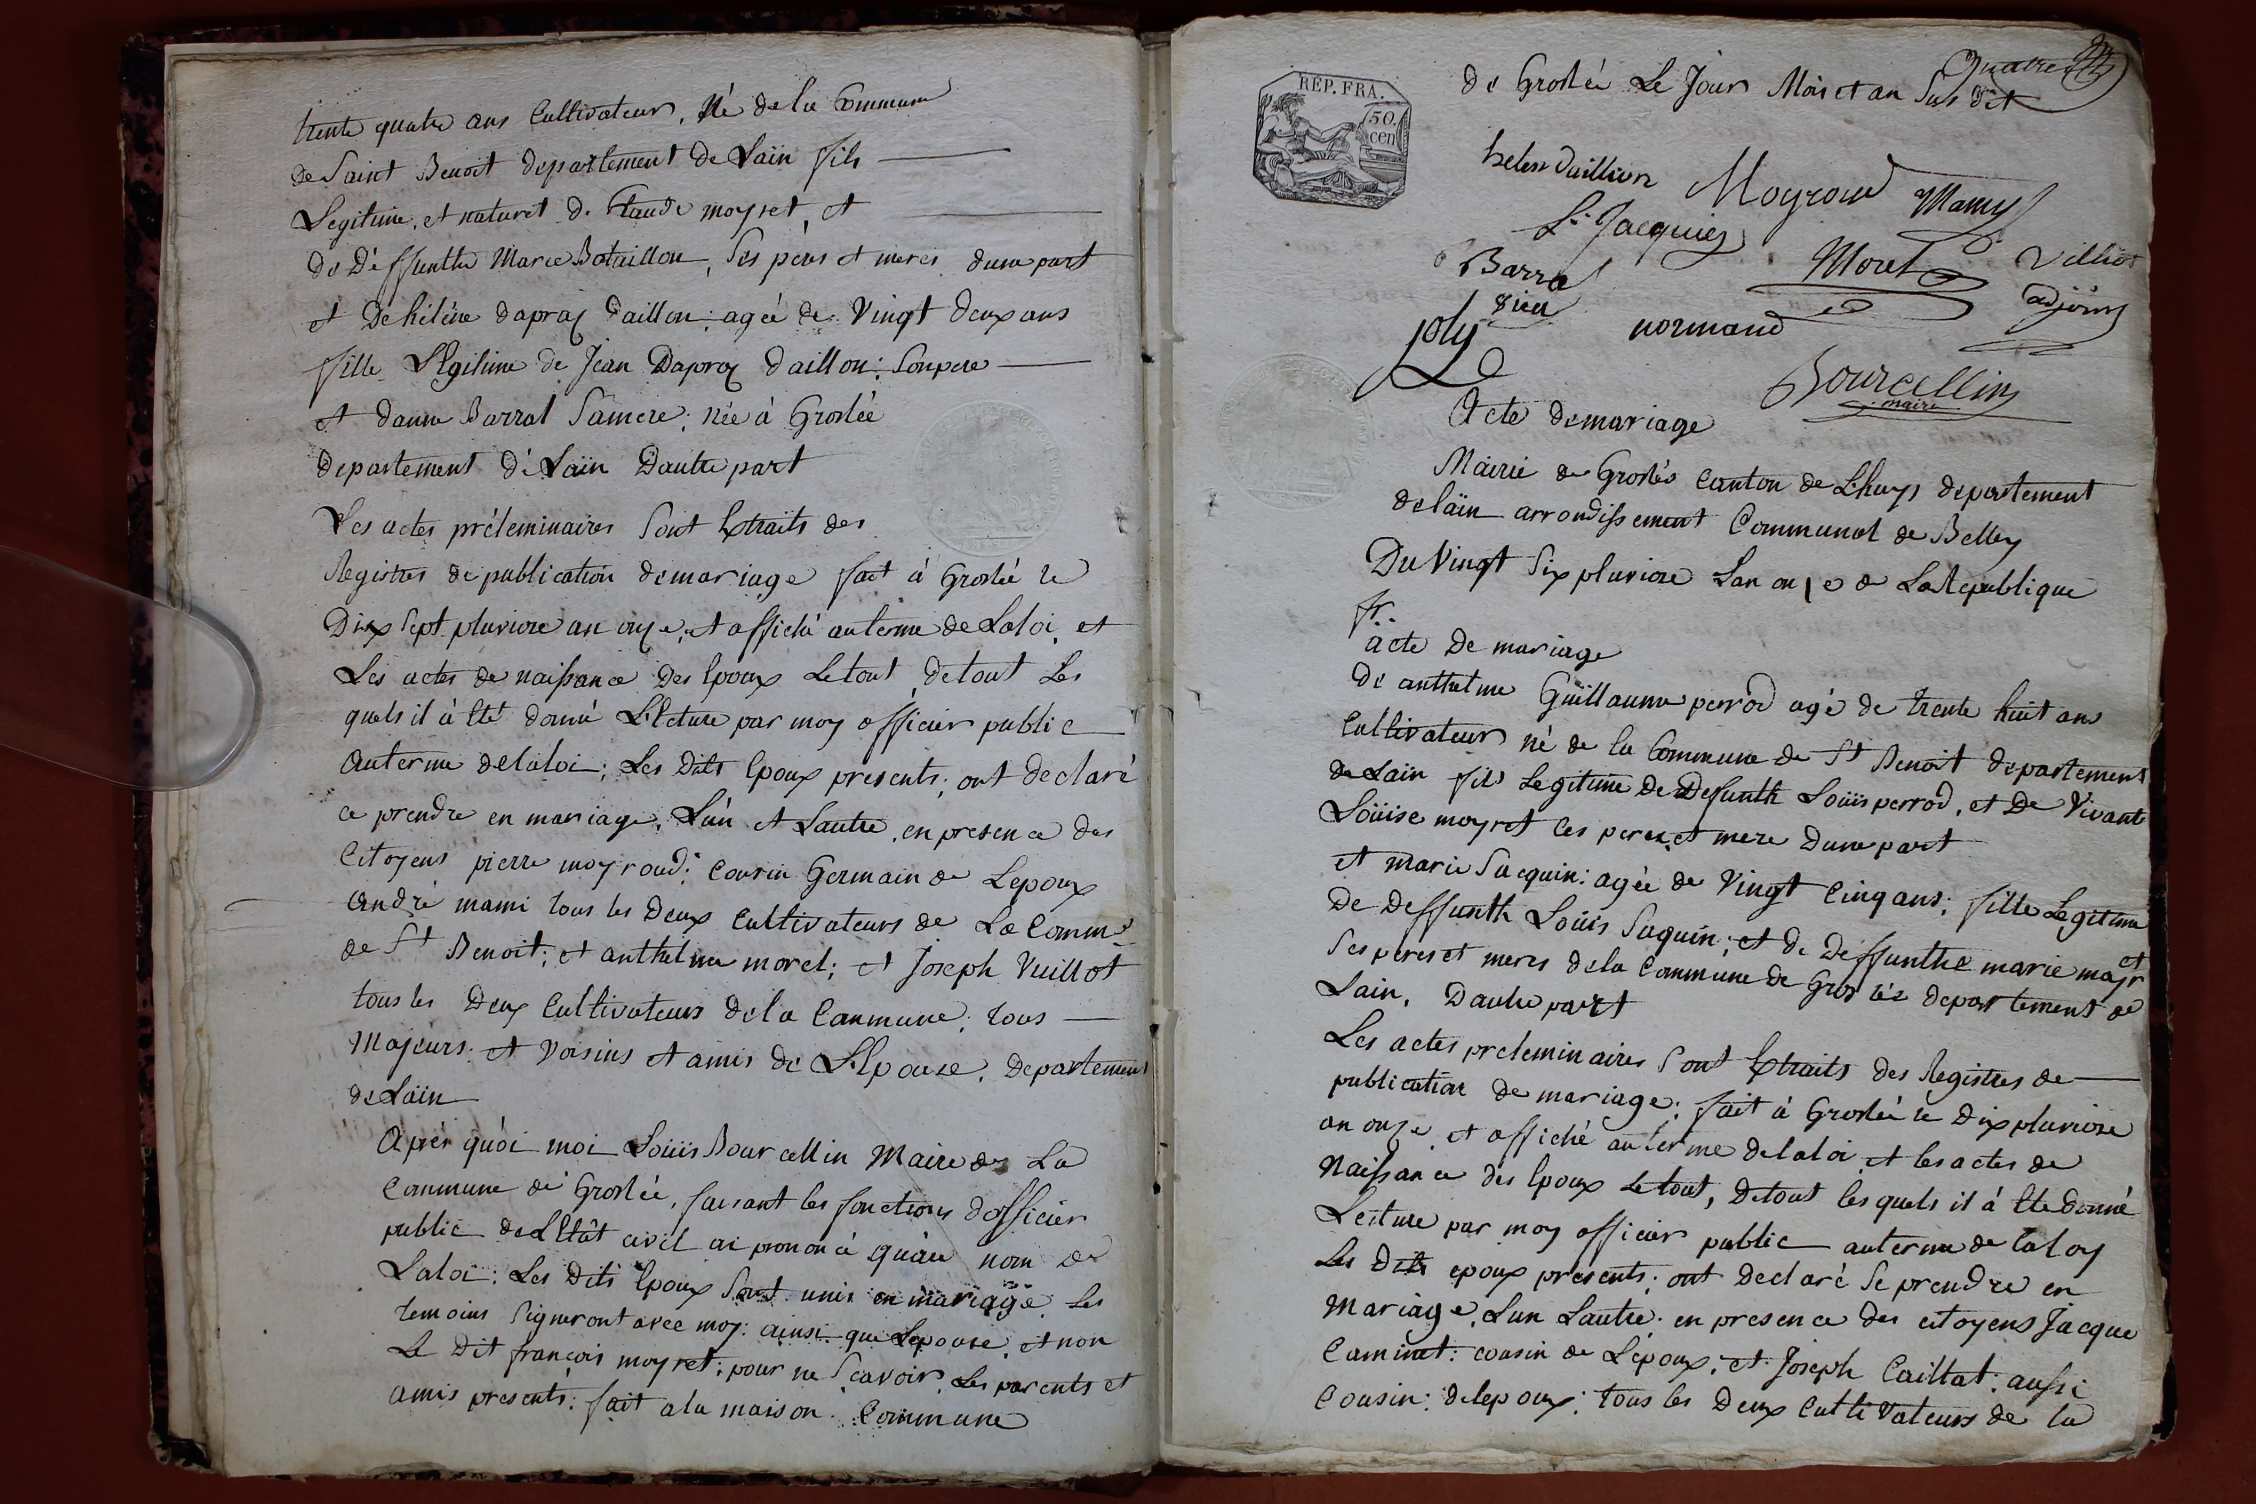 trente quatre ans Cultivateur, Né de la Commune
de Saint Benoit departement de Laïn fils
Legitime, et naturel de Claude moyret, et
de Déffunthe Marie Bataillon, Ses péres et meres dune part
et De héléne dapraz daillon; agée de Vingt deux ans
fille Légitime de Jean Dapraz daillon; Sonpere
et danne Barral Samere; Née à Groslée
departement de Laïn Dautre part
Les actes préleminaires Sont Extraits des
Registres de publication demariage fait à Groslée le
Dix Sept pluviose an onze, et affiché auterme de Laloi, et
Les actes de naissance des Epoux Letout, detout Les
quels il à Eté donné Lécture par moy officier public
auterme delaloi; Les Dits Epoux presents; ont declaré
ce prendre en mariage, Lún et Lautre, en presence des
Citoyens pierre moyroud; Cousin Germain de Lepoux
andré mami tous les deux Cultivateurs de La Comm.e
de St Benoit; et anthelme morel; et Joseph Vuillot
tous les Deux Cultivateurs dela Commune; tous
Majeurs; et Voisins et amis de LEpouse, departement
de Laïn
Aprés quòi moi Loüis Bourcellin Maire de La
Commune de Groslée, faisant les fonctions dofficier
public deLEtât civil ai prononcé quàu nom de
Laloi; Les Dits Epoux Sont unis en mariage Les
temoins Signeront avec moy: ainsi que Lepouse, et non
Le Dit françois moyret; pour ne Scavoir, Les parents et
amis presents: fait a la maison Commune
Quatre
RÉP. FRA.
50.
cen
de Groslée Le Jour Mois et an Sus dit
helen daillion Moyroud Mamy
L. Jacquier
Barral Morel Villiot
adjoint
Joly normand
Bourcellin
maire
Acte demariage
Mairie de Groslée Canton de Lhuys departement
delaïn arrondissement Communal de Belley
Du Vingt Six pluviose Lan onze de LaRepublique
fr.
acte De mariage
de anthelme Guillaume perrod agé de trente huit ans
Cultivateur né de la Commune de St Benoit departement
de Lain fils Legitime De Defunth Loüis perrod, et De Vivante
Loüise moyret ces peres et mere Dune part
et marie Suquin; agée de Vingt Cinq ans; fille Legitime
De Deffunth Loüis Suquin; et de Deffunthe marie mayet
Ses peres et meres dela Commune de Groslée departement de
Lain, Dautre part
Les actes preleminaires Sont Extraits des Registres de
publication de mariage; fait à Groslée le Dix pluviose
an onze, et affiché auterme delaloi, et les actes de
Naissance des Epoux Letout, Detout les quels il à Eté donné
Lecture par moy officier public auterme de laloy
Les Dits epoux presents; ont declaré Se prendre en
Mariage, Lun Lautre, en presence des citoyens Jacque
Caminet: cousin de Lépoux; et Joseph Caillat; aussi
Cousin; delepoux; tous les Deux Cultivateurs de la